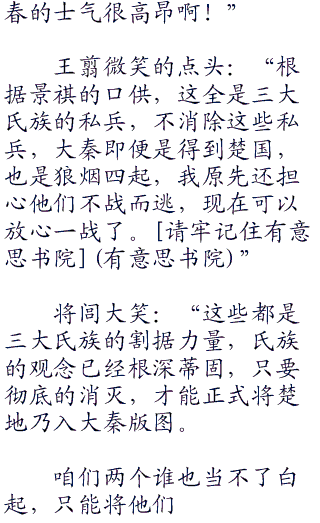 春的士气很高昂啊！”
王翦微笑的点头：“根
据景祺的口供，这全是三大
氏族的私兵，不消除这些私
兵，大秦即便是得到楚国，
也是狼烟四起，我原先还担
心他们不战而逃，现在可以
放心一战了。[请牢记住有意
思书院] (有意思书院)”
将闾大笑：“这些都是
三大氏族的割据力量，氏族
的观念已经根深蒂固，只要
彻底的消灭，才能正式将楚
地乃入大秦版图。
咱们两个谁也当不了白
起，只能将他们